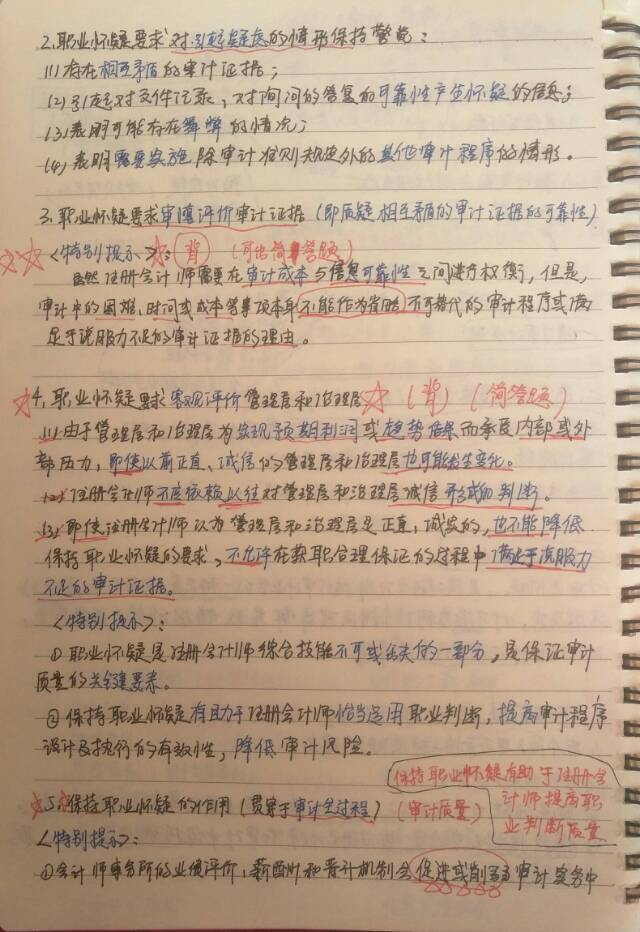 2.职业怀疑要求对引起疑虑的情形保持警觉：
(1)存在相互矛盾的审计证据；
(2)引起对文件记录、对询问的答复的可靠性产生怀疑的信息；
(3)表明可能存在舞弊的情况；
(4)表明需要实施除审计准则规定外的其他审计程序的情形。
3.职业怀疑要求审慎评价审计证据(即质疑相互矛盾的审计证据的可靠性)
☆☆<特别提示>：☆(背)(可出简答题)
虽然注册会计师需要在审计成本与信息可靠性之间进行权衡，但是，
审计中的困难、时间或成本等事项本身不能作为省略不可替代的审计程序或满
足于说服力不足的审计证据的理由。
☆4.职业怀疑要求客观评价管理层和治理层☆(背)(简答题)
(1)由于管理层和治理层为实现预期利润或趋势结果而承受内部或外
部压力，即使以前正直、诚信的管理层和治理层也可能发生变化。
(2)注册会计师不应依赖以往对管理层和治理层诚信形成的判断。
(3)即使注册会计师认为管理层和治理层是正直、诚实的，也不能降低
保持职业怀疑的要求，不允许在获取合理保证的过程中满足于说服力
不足的审计证据。
<特别提示>：
①职业怀疑是注册会计师综合技能不可或缺的一部分，是保证审计
质量的关键要素。
②保持职业怀疑有助于注册会计师恰当运用职业判断，提高审计程序
设计及执行的有效性，降低审计风险。
保持职业怀疑有助于注册会
计师提高职
业判断质量
☆5.☆保持职业怀疑的作用(贯穿于审计全过程)(审计质量)
<特别提示>：
①会计师事务所的业绩评价、薪酬和晋升机制会促进或削弱审计实务中